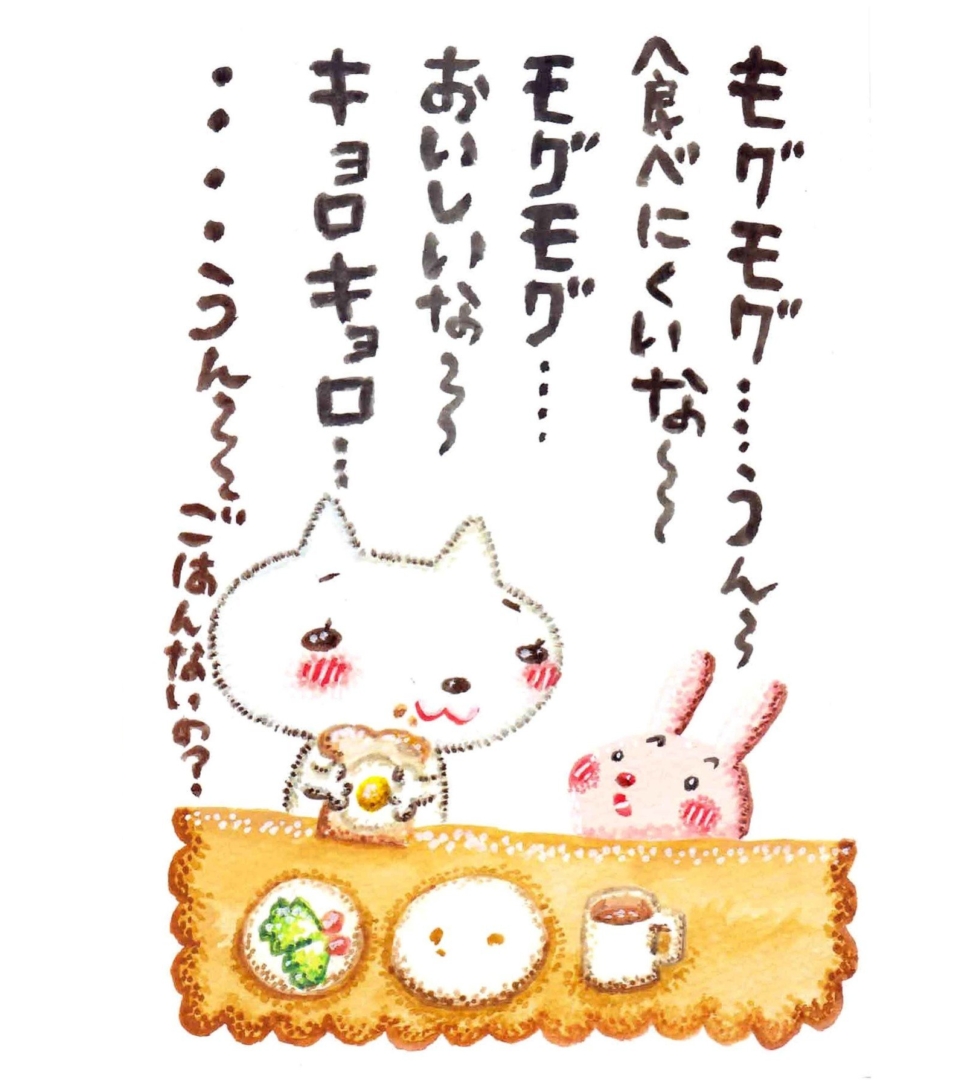 モグモグ....うん〜
食べにくいな〜〜
モグモグ....
おいしいな〜〜
キョロキョロ...
・・・・うん〜〜
ごはんないの?